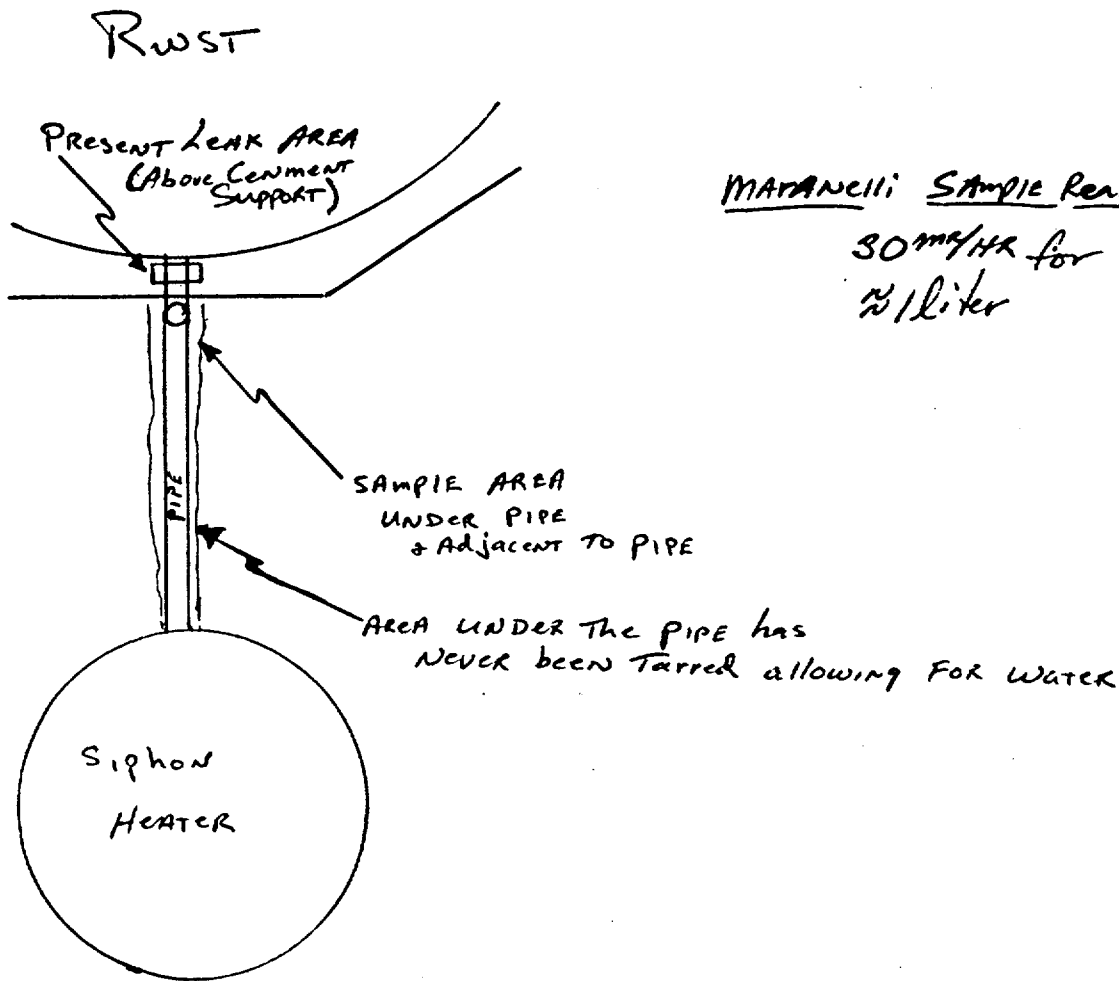 RWST
PRESENT LEAK AREA
(Above Cenment
SUPPORT)
MARANElli SAMPLE Rea
30 mR/HR for
≈ 1 liter
PIPE
SAMPLE AREA
UNDER PIPE
& Adjacent To PIPE
AREA UNDER The PIPE has
Never been Tarred allowing FOR WATER
Siphon
HEATER